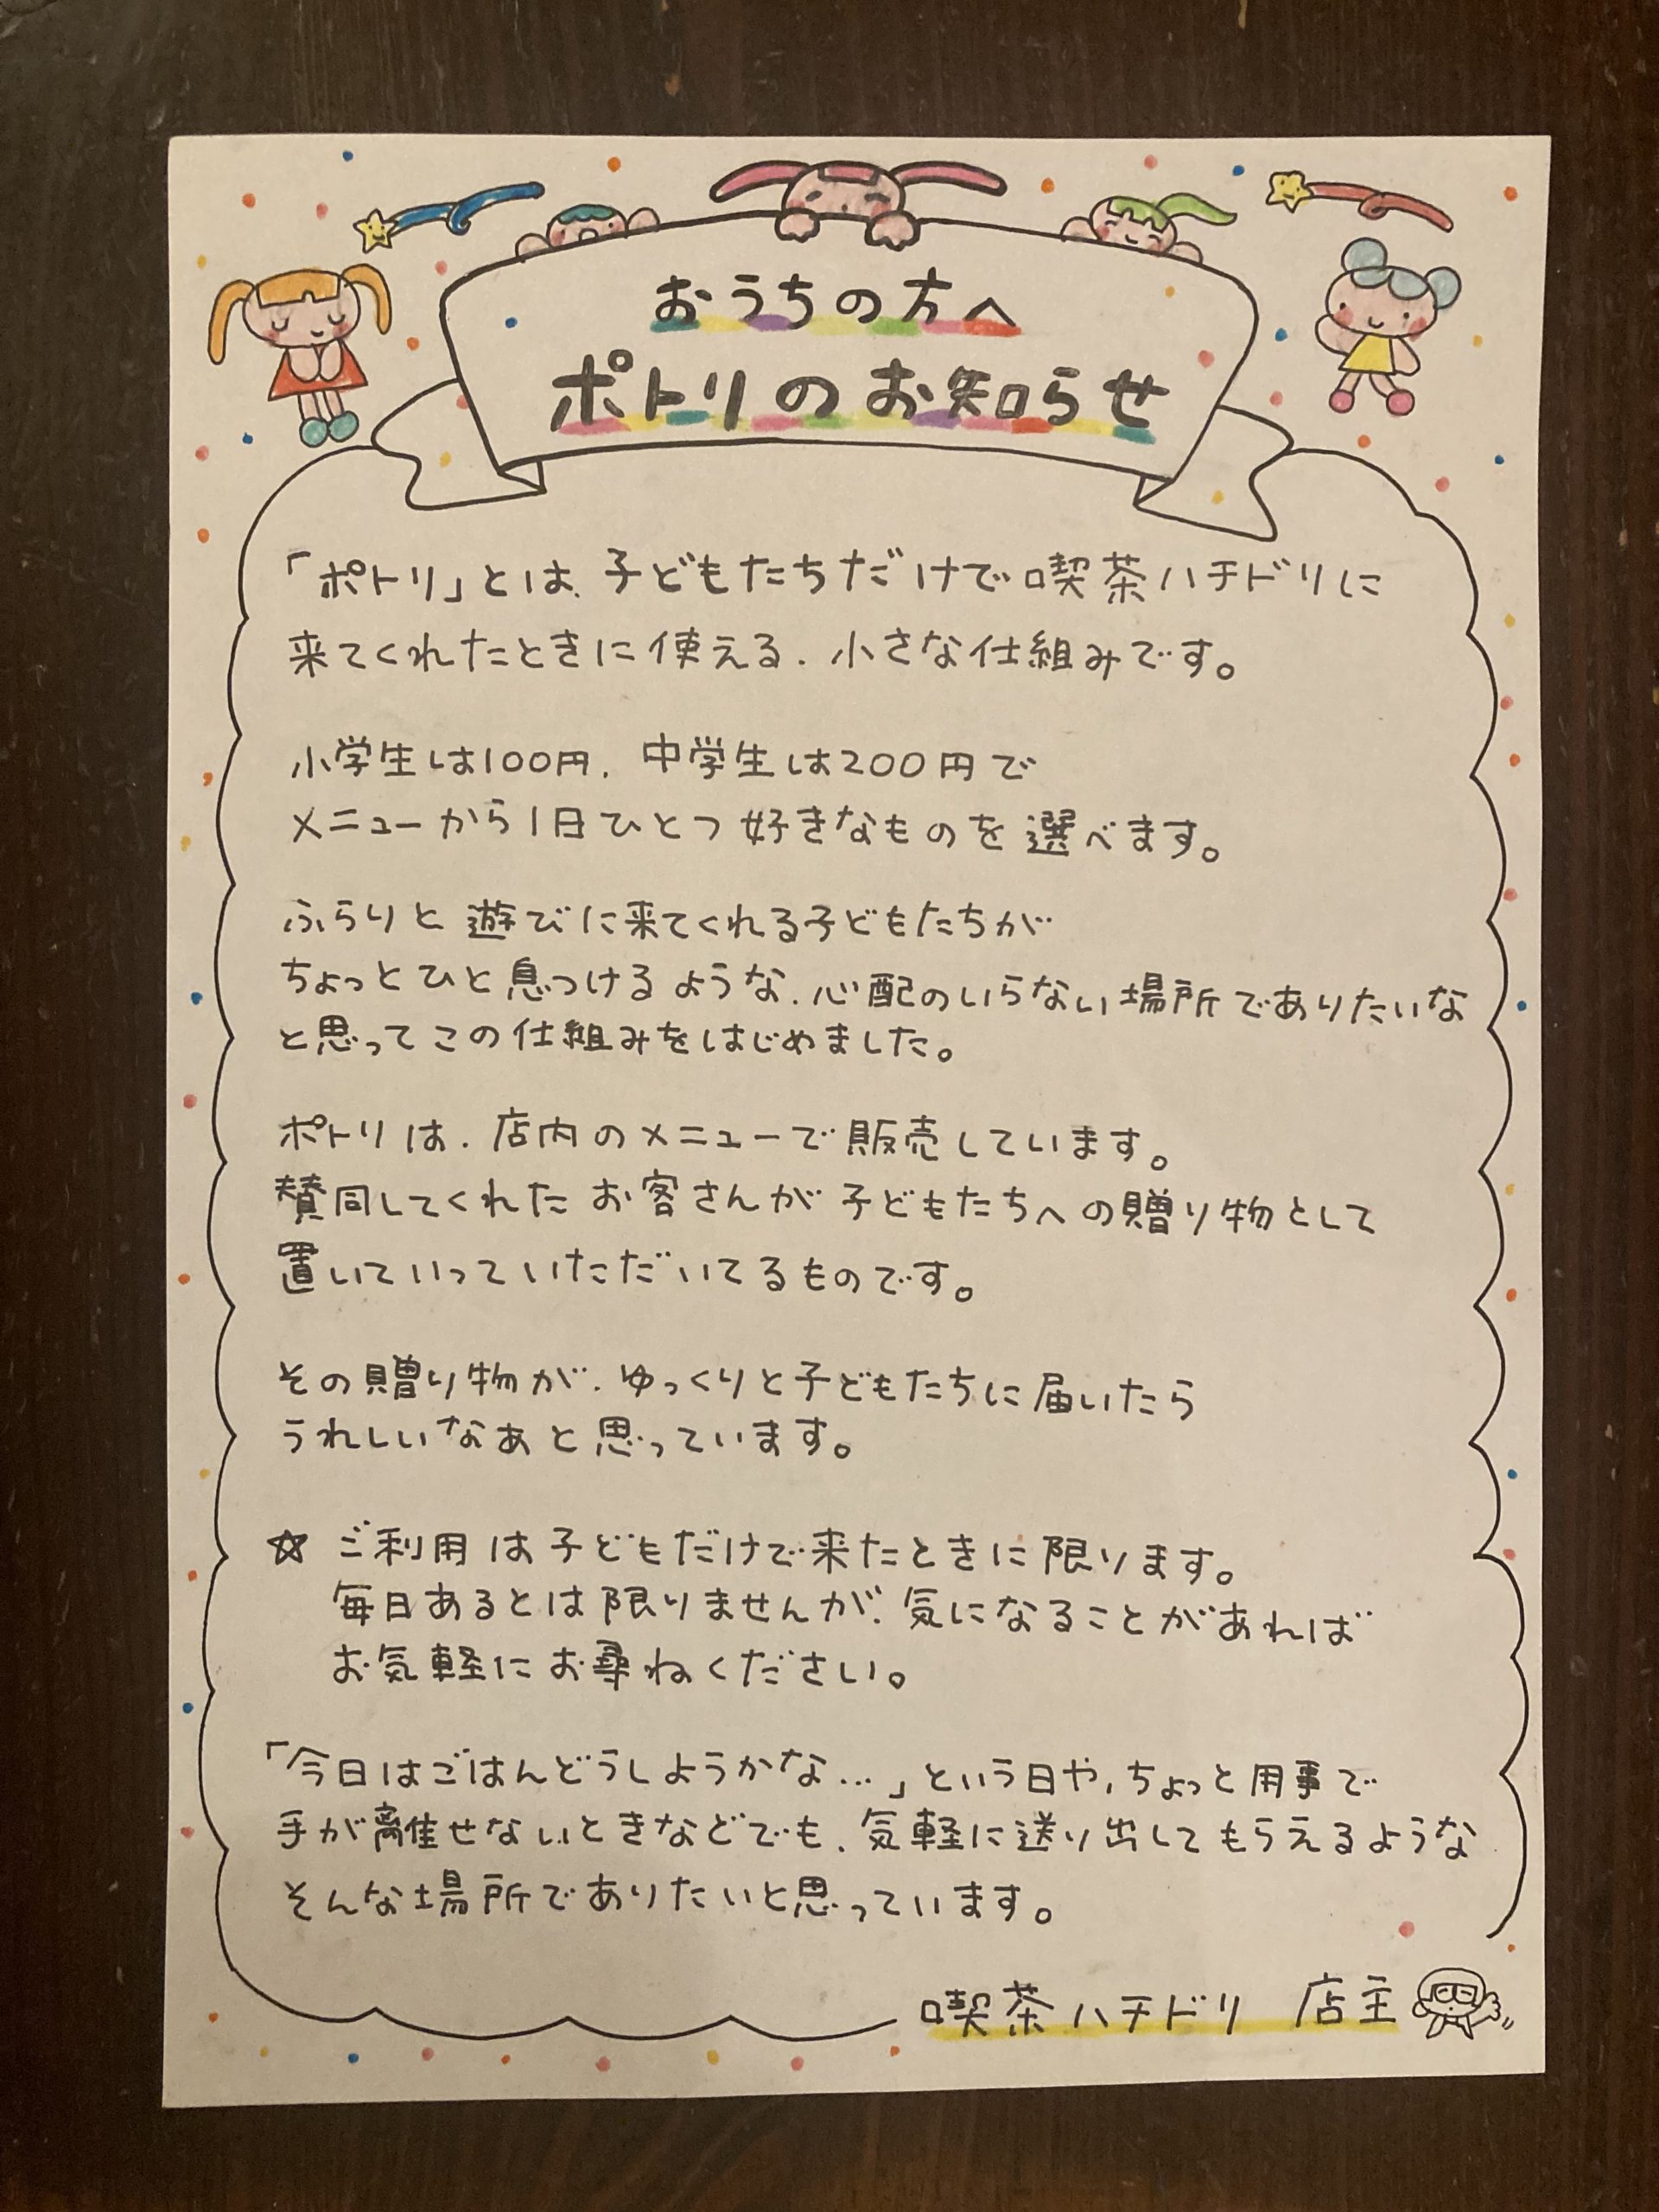 おうちの方へ
ポトリのお知らせ
「ポトリ」とは、子どもたちだけで喫茶ハチドリに
来てくれたときに使える、小さな仕組みです。
小学生は100円、中学生は200円で
メニューから1日ひとつ好きなものを選べます。
ふらりと遊びに来てくれる子どもたちが
ちょっとひと息つけるような、心配のいらない場所でありたいな
と思ってこの仕組みをはじめました。
ポトリは、店内のメニューで販売しています。
賛同してくれたお客さんが子どもたちへの贈り物として
置いていっていただいてるものです。
その贈り物が、ゆっくりと子どもたちに届いたら
うれしいなあと思っています。
☆ ご利用は子どもだけで来たときに限ります。
毎日あるとは限りませんが、気になることがあれば
お気軽にお尋ねください。
「今日はごはんどうしようかな...」という日や、ちょっと用事で
手が離せないときなどでも、気軽に送り出してもらえるような
そんな場所でありたいと思っています。
喫茶ハチドリ 店主